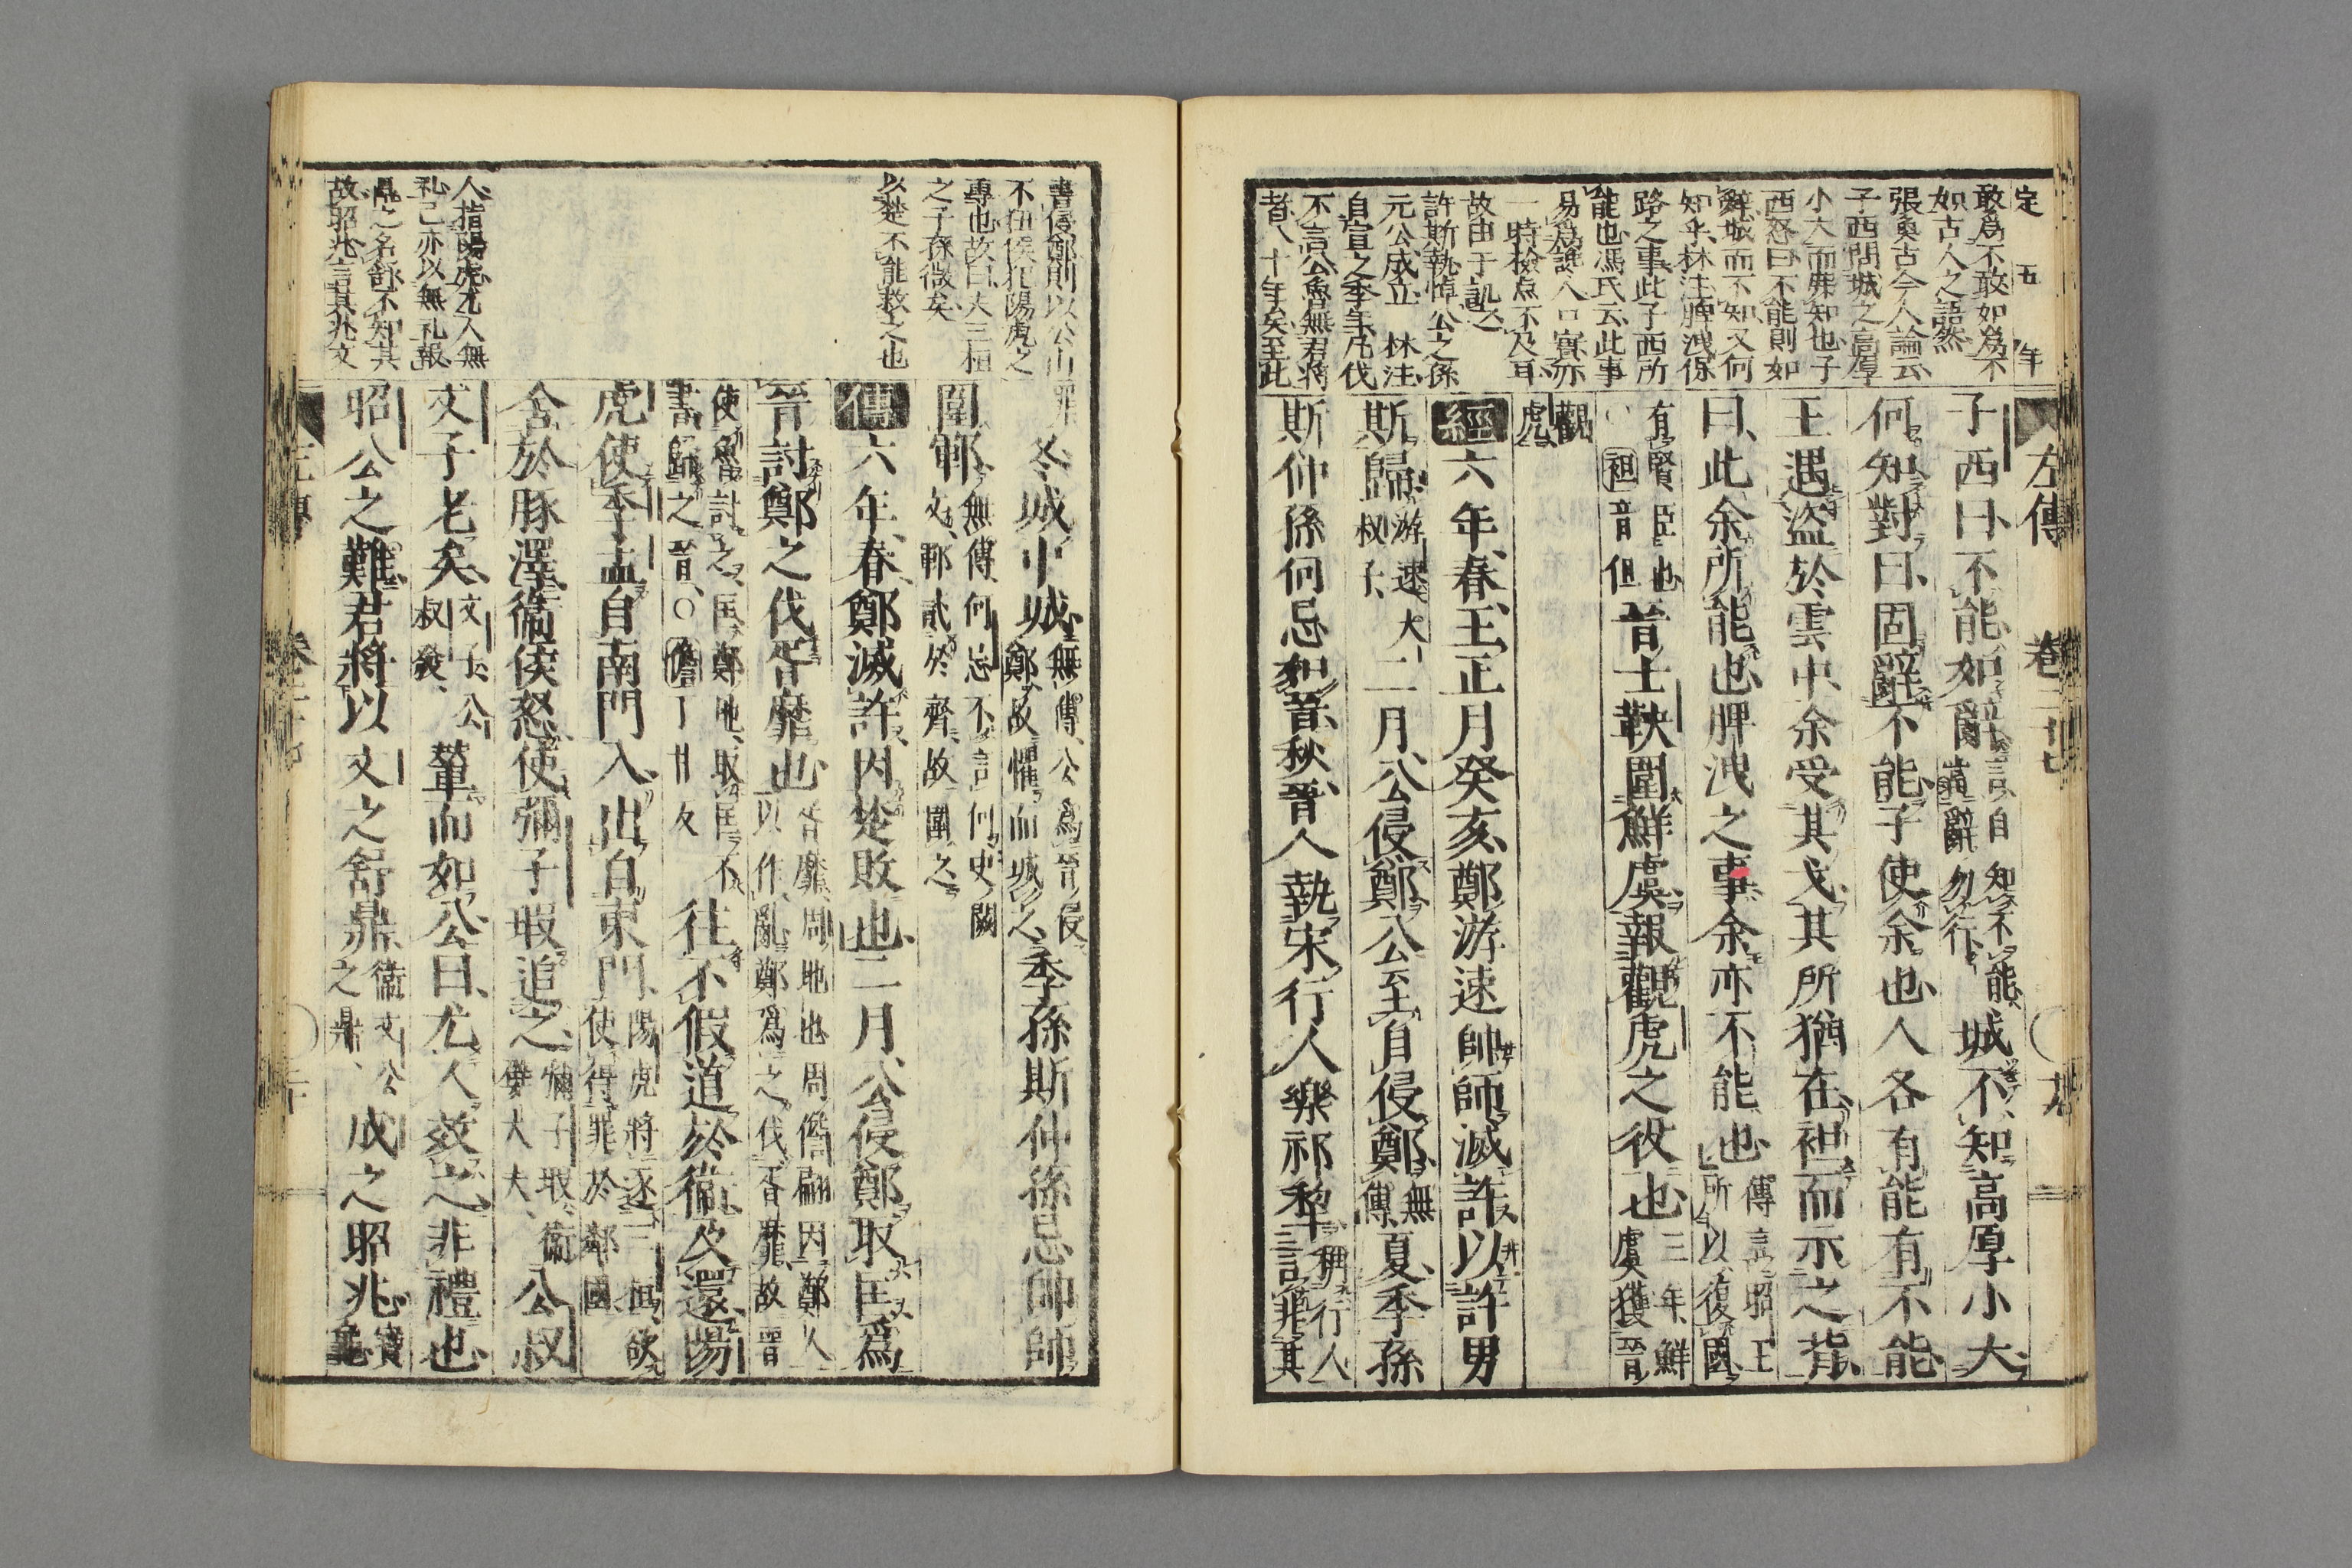 定 五 年
敢爲不敢如爲不
如古人之語然
張奐古今人論云
子西問城之高厚
小大而弗知也子
西怒曰不能則如
辭城而不知又何
知乎林注脾洩保
路之事此子西所
能也馮氏云此事
易爲誰人口實亦
一時檢点不及耳
故由于訊之
許斯執悼公之孫
元公成立 林注
自宣之季年凡伐
不言公魯無君將
者八十年矣至此
左傳 卷二十七
子西曰不能如辭言自知不能當辭勿行城不知高厚小大
何知對曰固辭不能子使余也人各有能有不能
王遇盜於雲中余受其戈其所猶在袒而示之背
曰此余所能也脾洩之事余亦不能也傳言昭王所以復國
有賢臣也○袒音但晉士鞅圍鮮虞報觀虎之役也三年鮮虞獲晉
觀虎
經六年春王正月癸亥鄭游速帥師滅許以許男
斯歸游速大叔子二月公侵鄭公至自侵鄭無傳夏季孫
斯仲孫何忌如晉秋晉人執宋行人樂祁犂稱行人言非其
書侵鄭則以公山
不狃侯犯陽虎之
專也故曰夫三桓
之子孫微矣
以楚不能救之也
人指陽虎尤人無
礼己亦以無礼報
鼎之名舒不知其
故昭兆言其兆文
罪冬城中城無傳公爲晉侵鄭故懼而城之季孫斯仲孫忌帥師
圍鄆無傳何忌不言何史闕文鄆貳於齊故圍之
傳六年春鄭滅許因楚敗也二月公侵鄭取匡爲
晉討鄭之伐胥靡也胥靡周地也周儋翩因鄭人以作亂鄭爲之伐胥靡故晉
使魯討之匡鄭地取匡不書歸之晉○儋丁甘反往不假道於衞及還陽
虎使季孟自南門入出自東門陽虎將逐三桓欲使得罪於鄰國
舍於豚澤衞侯怒使彌子瑕追之彌子瑕衞嬖大夫公叔
文子老矣文子公叔發輦而如公曰尤人而效之非禮也
昭公之難君將以文之舒鼎衞文公之鼎成之昭兆寶龜